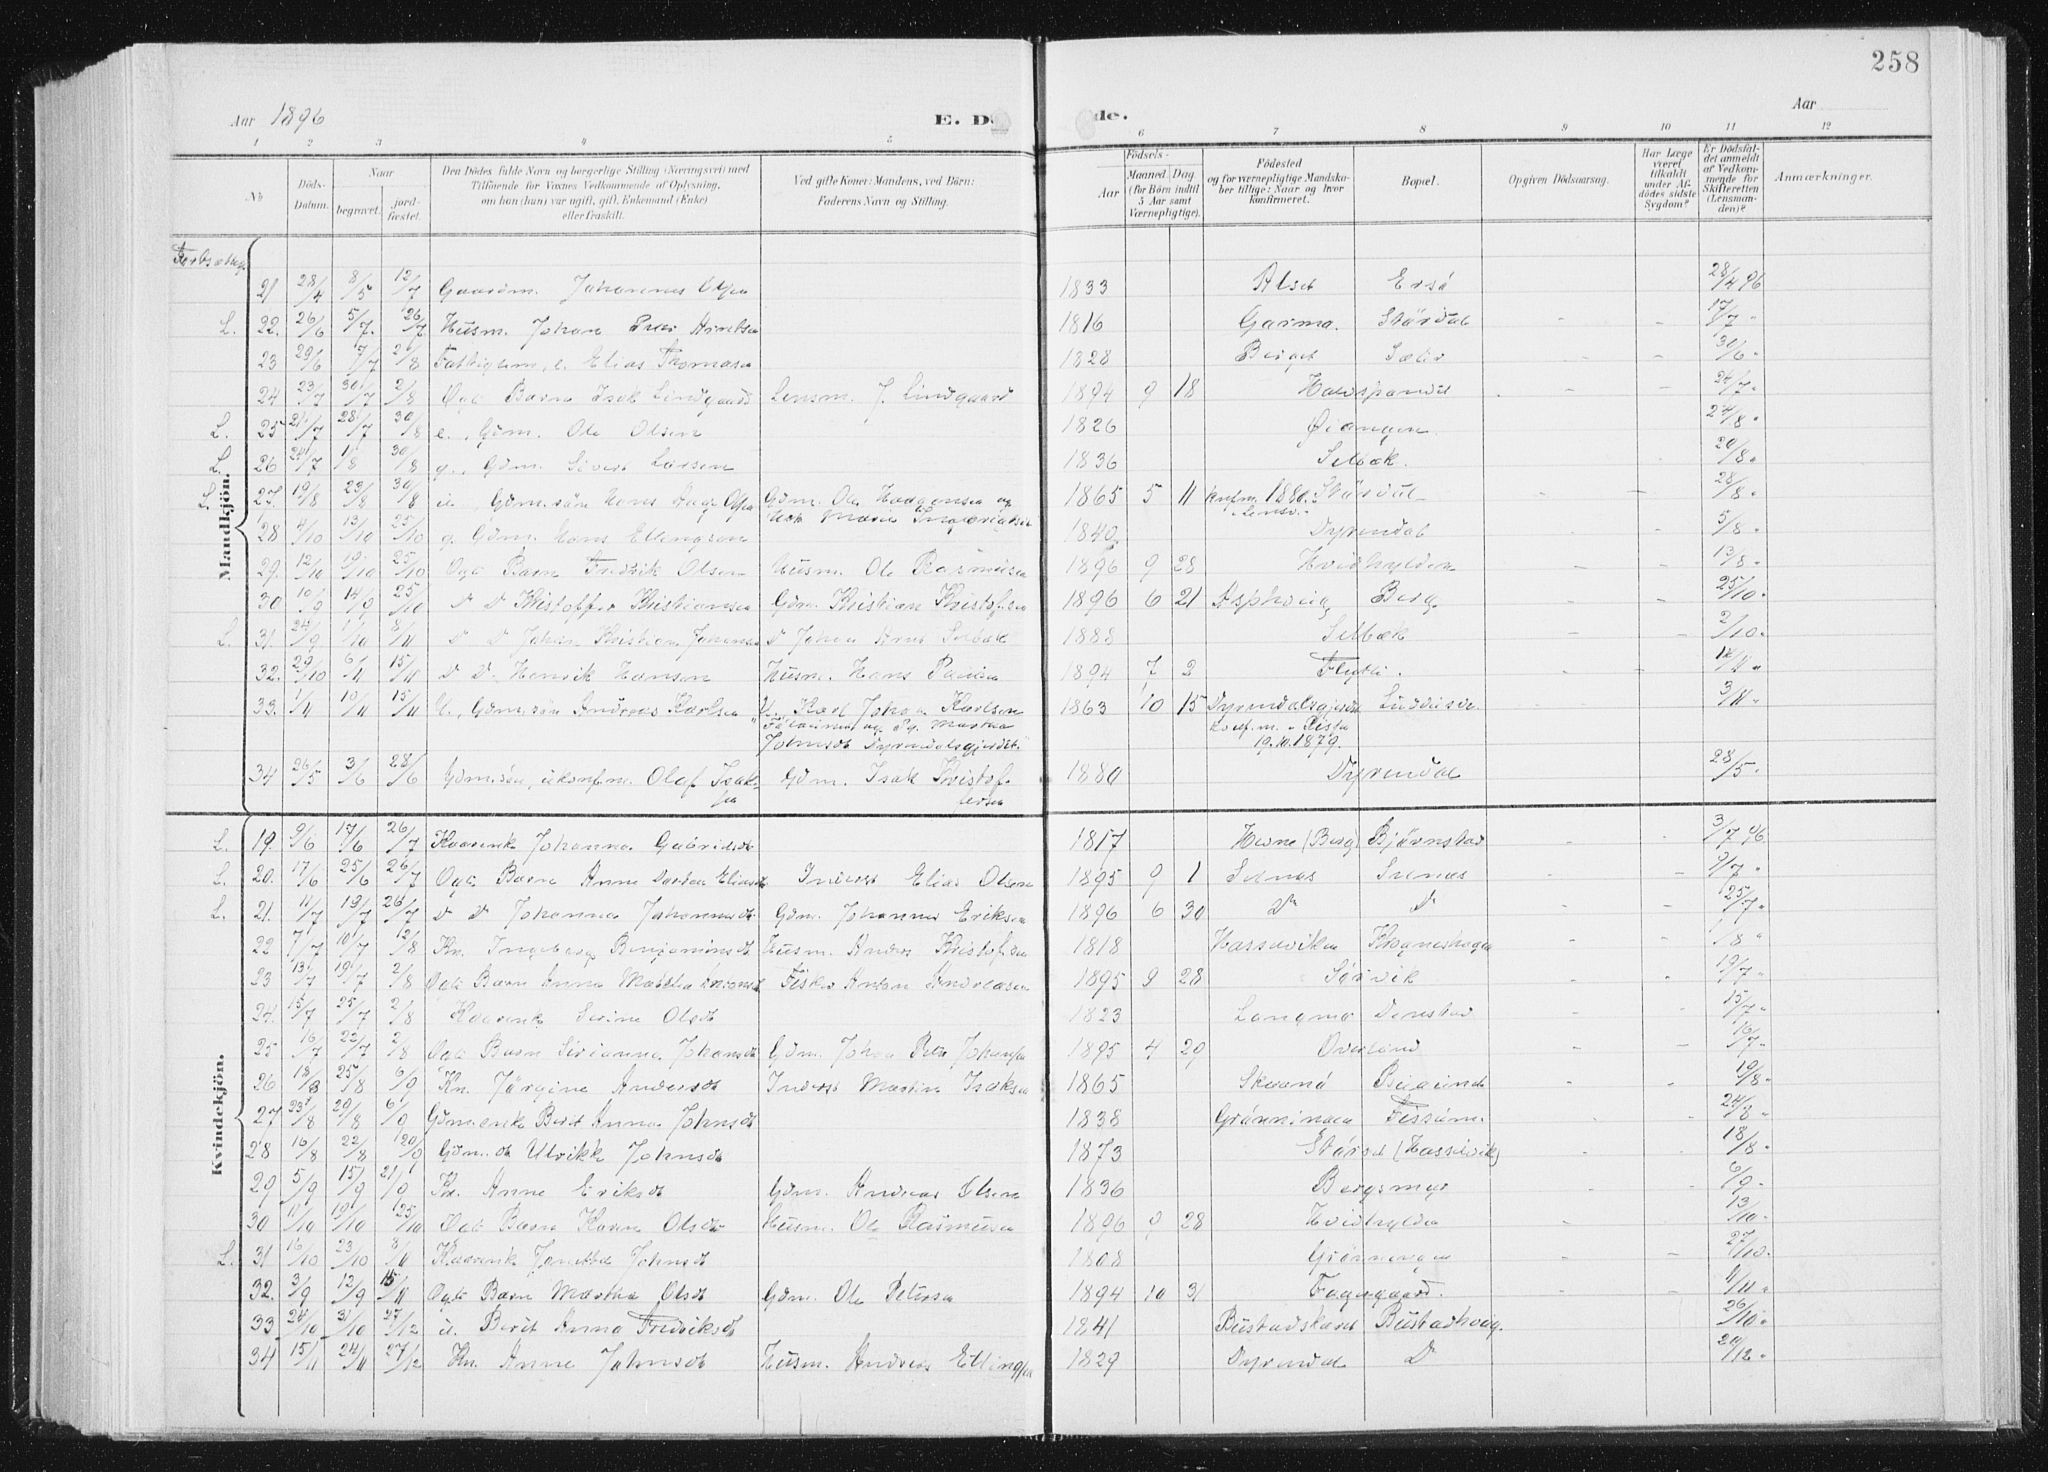 258
Aar 1896
E. Dö
de.
Aar
1 2 3 4 5 6 7 8 9 10 11 12
No
Döds-Datum.
Naar
begravet.
jord-fæstet.
Den Dödes fulde Navn og borgerlige Stilling (Næringsvei) med
Tilföiende for Voxnes Vedkommende af Oplysning,
om han (hun) var ugift, gift, Enkemand (Enke)
eller fraskilt.
Ved gifte Koner: Mandens, ved Börn:
Faderens Navn og Stilling.
Födsels-
Aar
Maaned. Dag.
(for Börn indtil
5 Aar samt
Værnepligtige).
Födested
og for værnepligtige Mandska-
ber tillige: Naar og hvor
konfirmeret.
Bopæl.
Opgiven Dödsaarsag.
Har Læge
været
tilkaldt
under Af-
dödes sidste
Sygdom?
Er Dödsfal-
det anmeldt
af Vedkom-
mende for
Skifteretten
(Lensman-
den)?
Anmærkninger.
Mandkjön.
21 28/4 8/5 12/7 Gaardm. Johannes Olsen 1833 Alset Ersö 28/4 96
L. 22. 26/6 5/7. 26/7 Husm. Johan Peter Arntsen 1816 Garma. Stördal - - 17/7 "
23 29/6 7/7 2/8 Fattiglem, e. Elias Thomasen 1828 Berget Sæter - - 30/6 "
24 23/7 30/7 2/8 Ogt. Barn Isak Lindgaard Lensm. J. Lindgaard 1894 9 18 - - 24/7 "
L. 25 21/7 28/7 30/8 e., Gdm. Ole Olsen 1826 Øiangen 24/8 "
L. 26 24/7 1/8 30/8 g., Gdm. Sivert Larsen 1836 Selbæk. 20/8 "
L. 27. 19/8 23/8 30/8 u., Gdm.sön Hans Aage Olsen Gdm. Ole Haagensen og 1865 5 11 konfm. 1880. Stördal - - 28/8 "
28 4/10 13/10 25/10 g. Gdm. Hans Ellingsen 1840 Dyrendal 5/8 "
29. 12/10 19/10 25/10 Ogt. Barn Fredrik Olsen Husm. Ole Rasmusen 1896 9 28 Hvidhylden - - 13/8 "
30 10/9 14/9 25/10 D D Kristoffer Kristiansen Gdm. Kristian Kristofsen 1896 6 21 Asphvig Berg - - 25/10 "
L. 31. 24/9 1/10 8/11 D D Johan Kristian Johansen D Johan Arnt Selbæk 1888 Selbæk - - 2/10 "
32. 29/10 6/11 15/11 D D. Henrik Hansen Husm. Hans Paulsen 1894 7 2 Flytli. - - 12/11 "
33. 1/11 10/11 15/11 U., Gdm.sön Andreas Karlsen U., Karl Johan Karlsen 1863 10 15 Dyrendalsgjerdet 3/11 "
Martha
Johnsdt Dyrendalsgjerdet."
konf. m.
19.10.1879.
34 26/5 3/6 28/6 Gdm.sön, ukonfm. Olaf Isak-
sen Gdm. Isak Kristof-
fersen 1880 Dyrendal 28/5 "
Kvindekjön.
L. 19. 9/6 17/6 26/7 Kaarenk Johanna Gabrielsdt 1817 Hevne (Berg) Bjørnstad - - 3/7 96
L. 20. 17/6 25/6 26/7 Ogt. Barn Anne Dordea Eliasdt Inderst Elias Olsen 1895 9 1 Selnes Selnes - - 9/7 "
L. 21. 11/7 19/7 26/7 D D Johanna Johannesdt. Gdm. Johannes Eriksen 1896 6 30 Do D - - 25/7 "
22 7/7 10/7 12/8 Kn. Ingeborg Benjaminsdt Husm. Anders Kristofsen 1818 Hasselviken Krogneshagen - - 1/8 "
23 13/7 19/7 2/8 Ogt. Barn Anna Mathilde Antonsdt Fisker Anton Andreasen 1895 9 28 Sørvik - - 19/7 "
24. 15/7 25/7 2/8 Kaarenk Serine Olsdt 1823 Langmo Denstad - - 15/7 "
25 16/7 22/7 2/8 Ogt. Barn Sirianna Johansdt Gdm. Johan Peter Johansen 1895 4 29 Overland - - 16/7 "
26 18/8 25/8 6/9 Kn. Jörgine Andersdt Inderst Martin Isaksen 1865 - - 19/8 "
27 23/8 29/8 6/9 Gdmenke Berit Anna Johnsdt 1838 Grönningen - - 24/8 "
28 16/8 22/8 20/9 Gdm. dt Ulrikke Johnsdt 1873 Störset (Hasselvik) - - 18/8 "
29 5/9 15/9 21/9 Kn. Anne Eriksdt Gdm. Andreas Olsen 1836 Bergsmyr - - 6/9 "
30 11/10 19/10 25/10 Ogt. Barn Karen Olsdt Husm. Ole Rasmusen 1896 9 28 Hvidhylden - - 13/10 "
L. 31 16/10 23/10 8/11 Kaarenk Jonetta Johnsdt 1808 Grönningen - - 27/10 "
32. 3/9 12/9 15/11 Ogt. Barn Martha Olsdt Gdm. Ole Petersen 1894 10 31 Fagergaard. - - 11/11 "
33 24/10 31/10 27/12 u. Berit Anna Fredriksdt 1841 Bustadskaret Bustadhvig. 26/10 "
34 15/11 24/11 27/12 Kn. Anne Johnsdt Husm. Andreas Ellingsen 1829 Dyrendal D 24/12 "